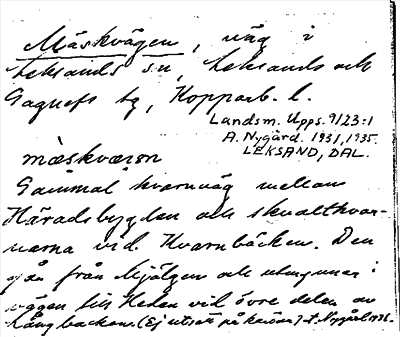 Mäskvägen, väg i
Leksands sn, Leksands och
Gagnefs tg, Kopparb. l.
Landsm. Upps. 9123:1
A. Nygård. 1931, 1935.
LEKSAND, DAL.
mæskværon
Gammal kvarnväg mellan
Häradsbygden och skvaltkvar-
narna vid Kvarnbäcken. Den
går från Mjälgen och utmynnar i
vägen till Heden vid övre delen av
Långbacken. (Ej utsatt på kartan) A Nygård 1931.